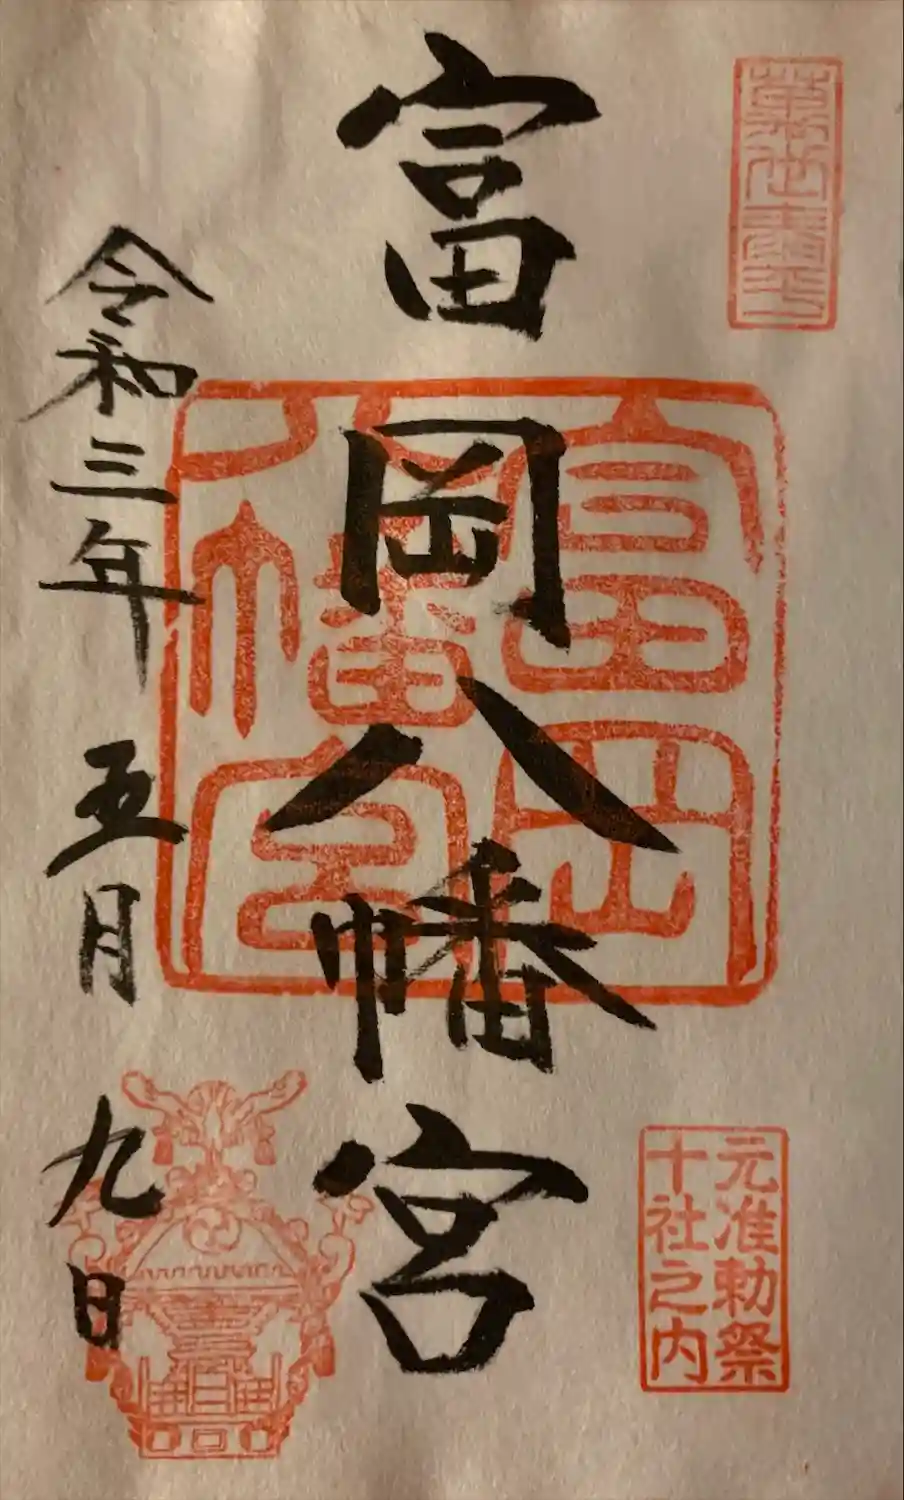 富岡八幡宮
富岡
八幡宮
元准勅祭
十社之内
令和三年 五月 九日